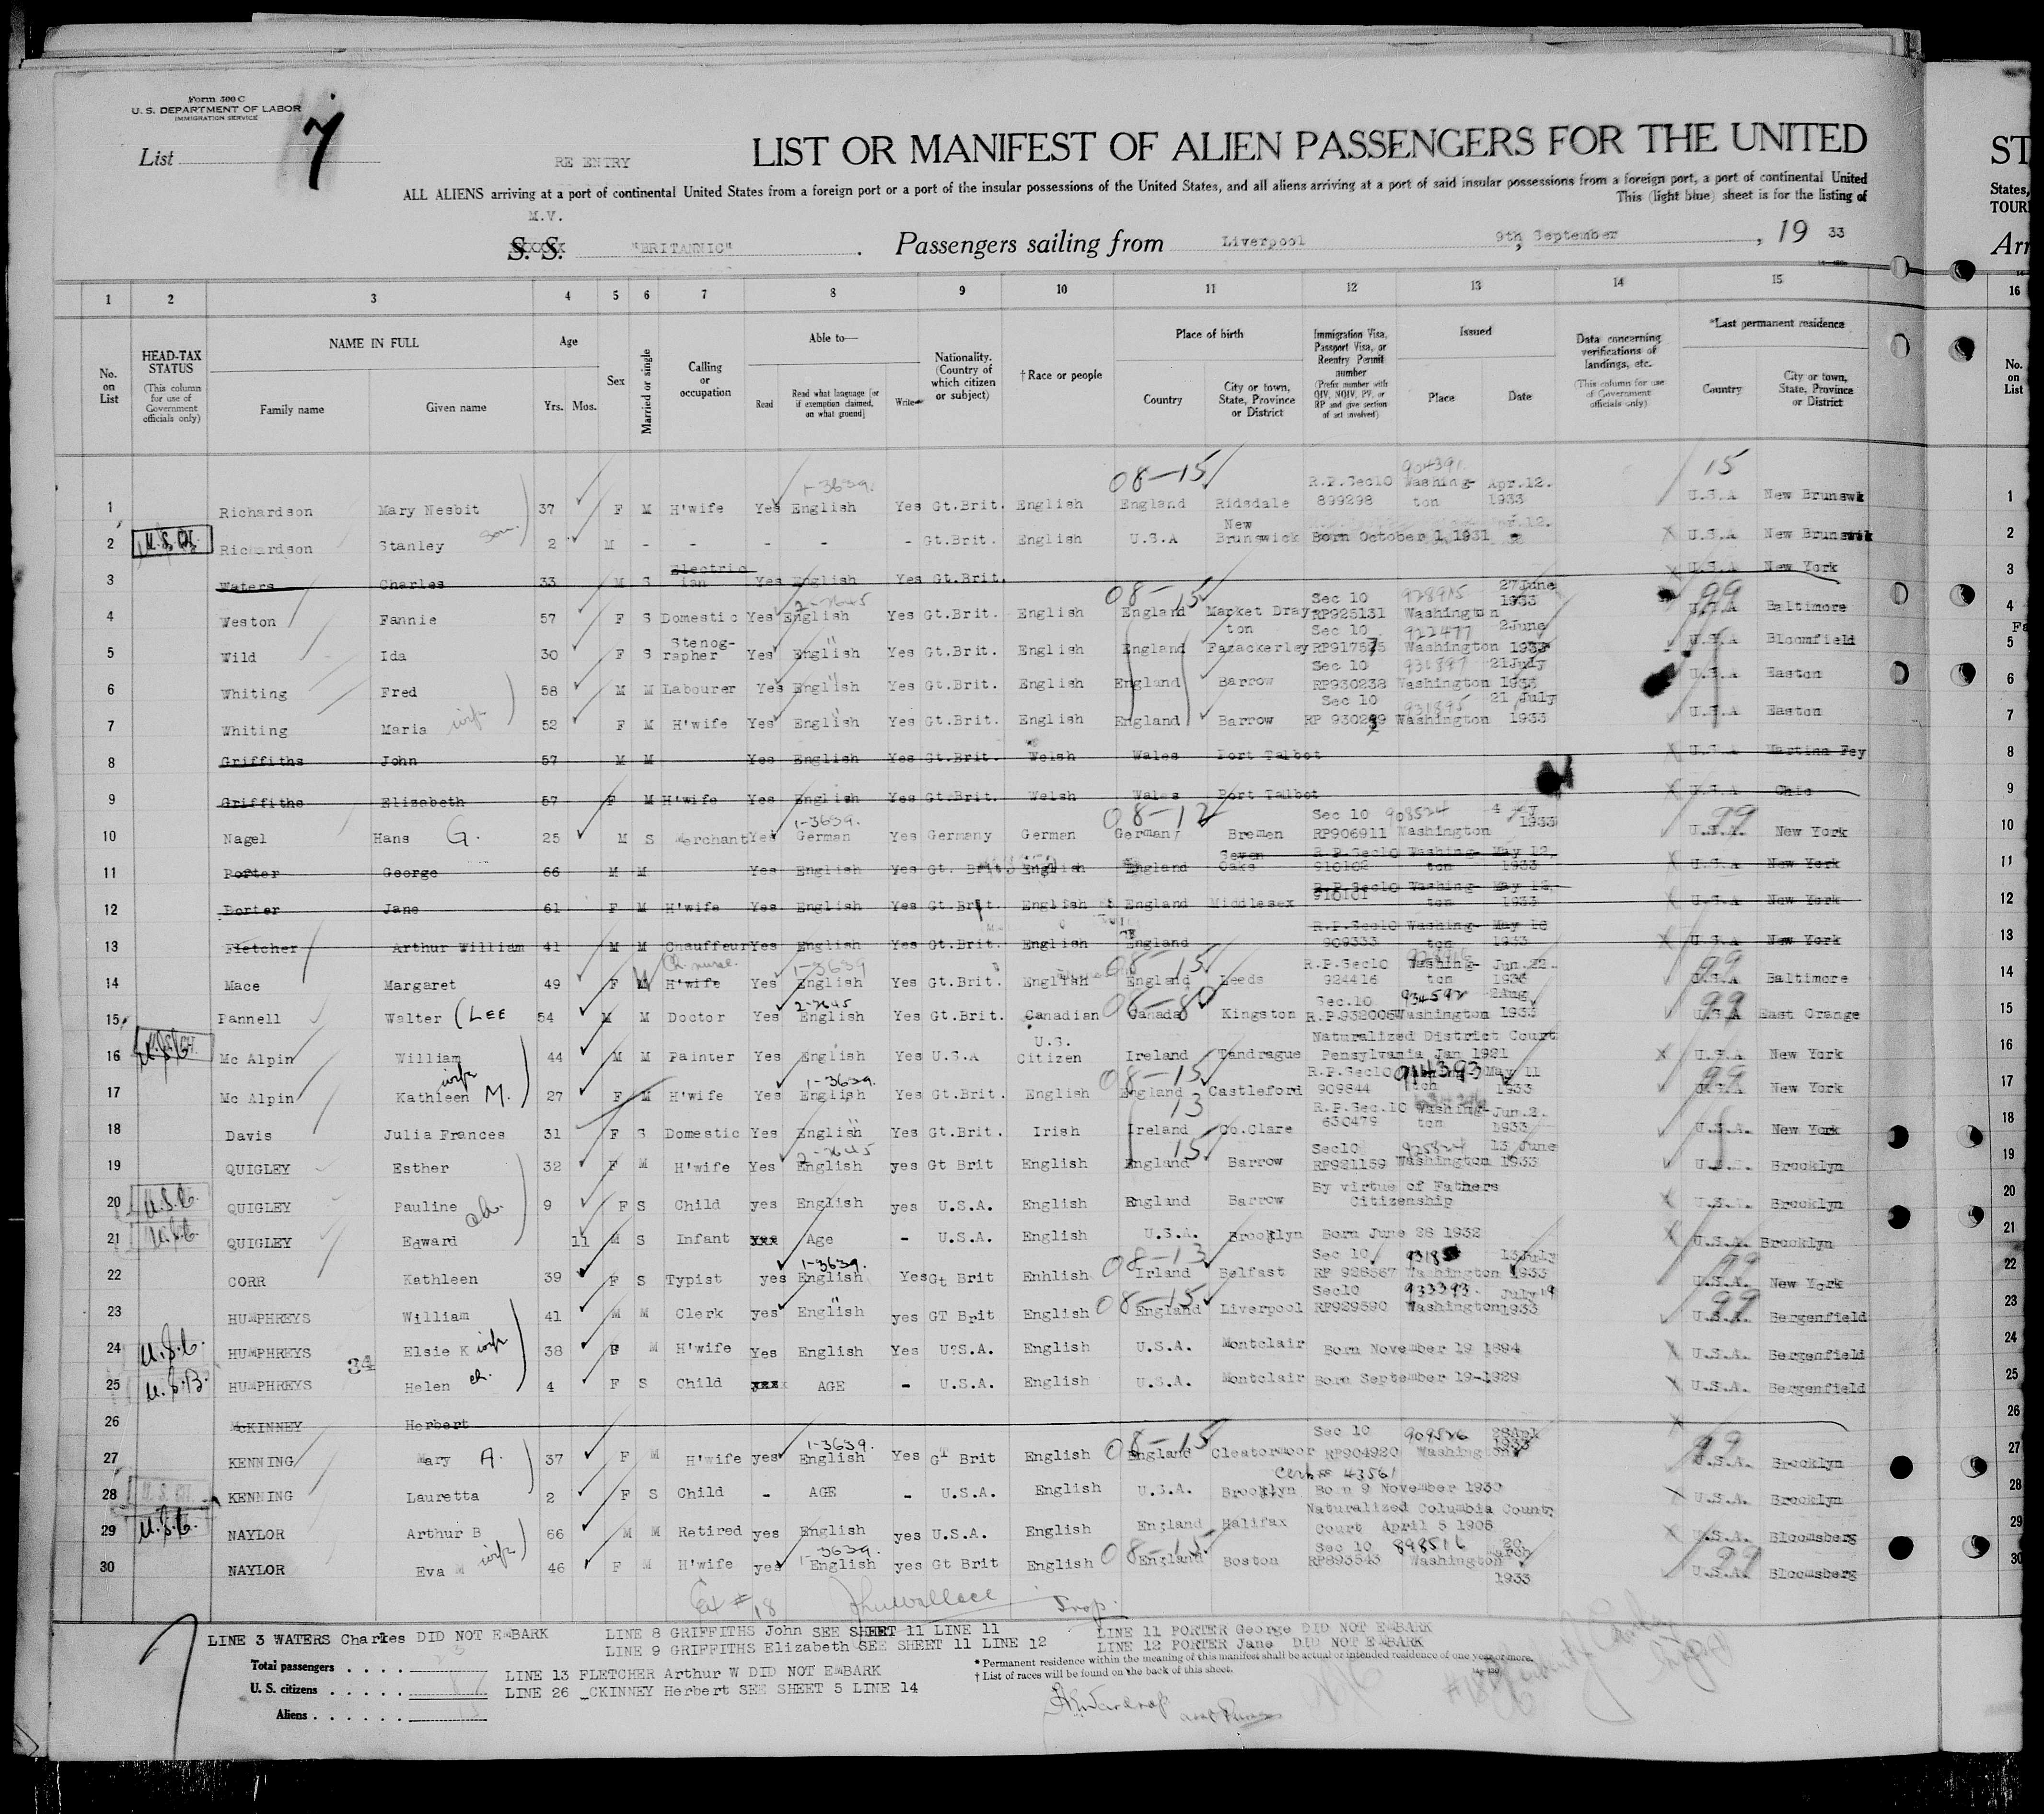 Form 500 C
U. S. DEPARTMENT OF LABOR
IMMIGRATION SERVICE
List 7
RE ENTRY
LIST OR MANIFEST OF ALIEN PASSENGERS FOR THE UNITED
ST
ALL ALIENS arriving at a port of continental United States from a foreign port or a port of the insular possessions of the United States, and all aliens arriving at a port of said insular possessions from a foreign port, a port of continental United
States,
This (light blue) sheet is for the listing of
TOUR
M.V.
S. S. "BRITANNIC". Passengers sailing from Liverpool 9th, September, 19 33
Arr
1 2 3 4 5 6 7 8 9 10 11 12 13 14 15 16
No. on List
HEAD-TAX STATUS (This column for use of Government officials only)
NAME IN FULL
Family name Given name
Age Yrs. Mos.
Sex
Married or single
Calling or occupation
Able to—
Read Read what language [or if exemption claimed, on what ground] Write
Nationality. (Country of which citizen or subject)
†Race or people
Place of birth
Country City or town, State, Province or District
Immigration Visa, Passport Visa, or Reentry Permit number (Prefix number with QIV, NQIV, PV, or RP and give section of act involved)
Issued
Place Date
Data concerning verifications of landings, etc. (This column for use of Government officials only)
*Last permanent residence
Country City or town, State, Province or District
No. on List
08-15 15
1 Richardson Mary Nesbit 37 F M H'wife Yes 1-3639. English Yes Gt.Brit. English England Ridsdale R.P.Sec10 899298 904391 Washing-ton Apr.12. 1933 U.S.A New Brunswk 1
2 U.S.CH. Richardson Stanley son. 2 M - - - - - Gt.Brit. English U.S.A New Brunswick Born October 1 1931 U.S.A New Brunswik 2
3 Waters Charles 33 M S Electric ian Yes English Yes Gt.Brit. U.S.A New York 3
4 Weston Fannie 57 F S Domestic Yes 2-7645 English Yes Gt.Brit. English 08-15 England Market Dray ton Sec 10 RP925131 928915 Washington 27June 1933 99 U.S.A Baltimore 4
5 Wild Ida 30 F S Stenog-rapher Yes English Yes Gt.Brit. English England Fazackerley Sec 10 RP917575 922477 Washington 2June 1933 U.S.A Bloomfield 5
6 Whiting Fred 58 M M Labourer Yes English Yes Gt.Brit. English England Barrow Sec 10 RP930238 931897 Washington 21July 1933 U.S.A Easton 6
7 Whiting Maria wife 52 F M H'wife Yes English Yes Gt.Brit. English England Barrow Sec 10 RP 930239 931895 Washington 21 July 1933 U.S.A Easton 7
8 Griffiths John 57 M M Yes English Yes Gt.Brit. Welsh Wales Port Talbot U.S.A Martins Fey 8
9 Griffiths Elizabeth 57 F M H'wife Yes English Yes Gt.Brit. Welsh Wales Port Talbot U.S.A Ohio 9
10 Nagel Hans G. 25 M S Merchant Yes 1-3639. German Yes Germany German 08-12 Germany Bremen Sec 10 RP906911 908524 Washington 1933 99 U.S.A. New York 10
11 Porter George 66 M M Yes English Yes Gt. Brit English England Seven Oaks R.P.Sec10 910102 Washing-ton May 12, 1933 U.S.A New York 11
12 Porter Jane 61 F M H'wife Yes English Yes Gt.Brit English England Middlesex R.P.Sec10 910101 Washing-ton May 12, 1933 U.S.A New York 12
13 Fletcher Arthur William 41 M M Chauffeur Yes English Yes Gt.Brit. English England R.P.Sec10 909333 Washing-ton May 16 1933 U.S.A New York 13
14 Mace Margaret 49 F M Ch. nurse. H'wife Yes 1-3639 English Yes Gt.Brit. English 08-15 England Leeds R.P.Sec10 924416 Washing-ton Jun.22. 1933 99 U.S.A Baltimore 14
15 Pannell Walter (LEE 54 M M Doctor Yes 2-7645 English Yes Gt.Brit. Canadian 08-80 Canada Kingston Sec.10 R.P.932006 934592 Washington 2Aug 1933 99 U.S.A East Orange 15
16 U.S.C. Mc Alpin William 44 M M Painter Yes English Yes U.S.A U.S. Citizen Ireland Tandrague Naturalized District Court Pensylvania Jan 1921 U.S.A New York 16
17 Mc Alpin wife Kathleen M. 27 F M H'wife Yes 1-3639. English Yes Gt.Brit. English 08-15 England Castleford R.P.Sec10 909844 914393 ton May 11 1933 99 U.S.A New York 17
18 Davis Julia Frances 31 F S Domestic Yes English Yes Gt.Brit. Irish 13 Ireland Co.Clare R.P.Sec.10 630479 Washing-ton Jun.2. 1933 U.S.A. New York 18
19 QUIGLEY Esther 32 F M H'wife Yes 2-7645 English yes Gt Brit English 15 England Barrow Sec10 RP921159 925824 Washington 13 June 1933 Brooklyn 19
20 U.S.C. QUIGLEY Pauline ch. 9 F S Child yes English yes U.S.A. English England Barrow By virtue of Fathers Citizenship Brooklyn 20
21 U.S.C. QUIGLEY Edward 11 M S Infant Age - U.S.A. English U.S.A. Brooklyn Born June 26 1932 U.S.A. Brooklyn 21
22 CORR Kathleen 39 F S Typist yes 1-3639. English Yes Gt Brit Enhlish 08-13 Irland Belfast Sec 10 RP 928567 Washington 13July 1933 99 U.S.A. New York 22
23 HUMPHREYS William 41 M M Clerk yes English yes GT Brit English 08-15 England Liverpool Sec10 RP929590 933393. Washington July 19 1933 99 U.S.A. Bergenfield 23
24 U.S.C. HUMPHREYS Elsie K wife 38 F M H'wife Yes English Yes U?S.A. English U.S.A. Montclair Born November 19 1894 U.S.A. Bergenfield 24
34
25 U.S.B. HUMPHREYS Helen ch. 4 F S Child AGE - U.S.A. English U.S.A. Montclair Born September 19-1929 U.S.A. Bergenfield 25
26 McKINNEY Herbert 26
27 KENNING Mary A. 37 F M H'wife yes 1-3639. English Yes GT Brit English 08-15 England Cleatormoor Sec 10 RP904920 908526 Washington 28Apl 1933 99 U.S.A. Brooklyn 27
28 U.S.CH. KENNING Lauretta 2 F S Child - AGE - U.S.A. English U.S.A. Brooklyn Cert # 43561 Born 9 November 1930 U.S.A. Brooklyn 28
29 U.S.C. NAYLOR Arthur B 66 M M Retired yes English yes U.S.A. English England Halifax Naturalized Columbia County Court April 5 1905 U.S.A. Bloomsberg 29
30 NAYLOR Eva M wife 46 F M H'wife yes 1-3639. English yes Gt Brit English 08-15. England Boston Sec 10 RP893543 898516 Washington 20 March 1933 99 U.S.A. Bloomsberg 30
Ex # 18 Insp.
LINE 3 WATERS Charles DID NOT EMBARK LINE 8 GRIFFITHS John SEE SHEET 11 LINE 11 LINE 11 PORTER George DID NOT EMBARK
LINE 9 GRIFFITHS Elizabeth SEE SHEET 11 LINE 12 LINE 12 PORTER Jane DID NOT EMBARK
Total passengers
* Permanent residence within the meaning of this manifest shall be actual or intended residence of one year or more.
LINE 13 FLETCHER Arthur W DID NOT EMBARK † List of races will be found on the back of this sheet.
U. S. citizens
LINE 26 _CKINNEY Herbert SEE SHEET 5 LINE 14
Aliens